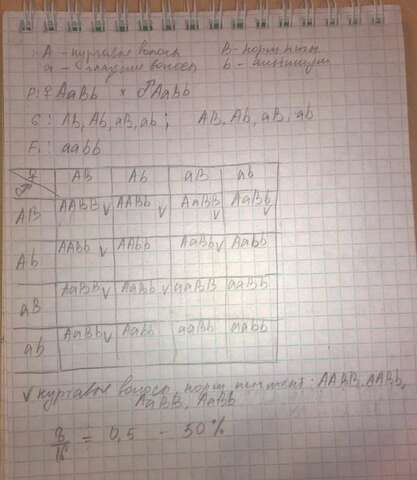 A - курчавые волосы B - норм. пигм.
a - гладкие волосы b - альбинизм
P: ♀ AaBb × ♂ AaBb
G: Ab, aB, ab; AB, Ab, aB, ab
F₁: aabb
♀ ♂ AB Ab aB ab
AB AABB ✓ AABb ✓ AaBB ✓ AaBb ✓
Ab AABb ✓ AAbb AaBb ✓ Aabb
aB AaBB ✓ AaBb ✓ aaBB aaBb
ab AaBb ✓ Aabb aaBb aabb
✓ курчавые волосы, норм. пигмент: AABB, AABb,
AaBB, AaBb
= 0,5 - 50%